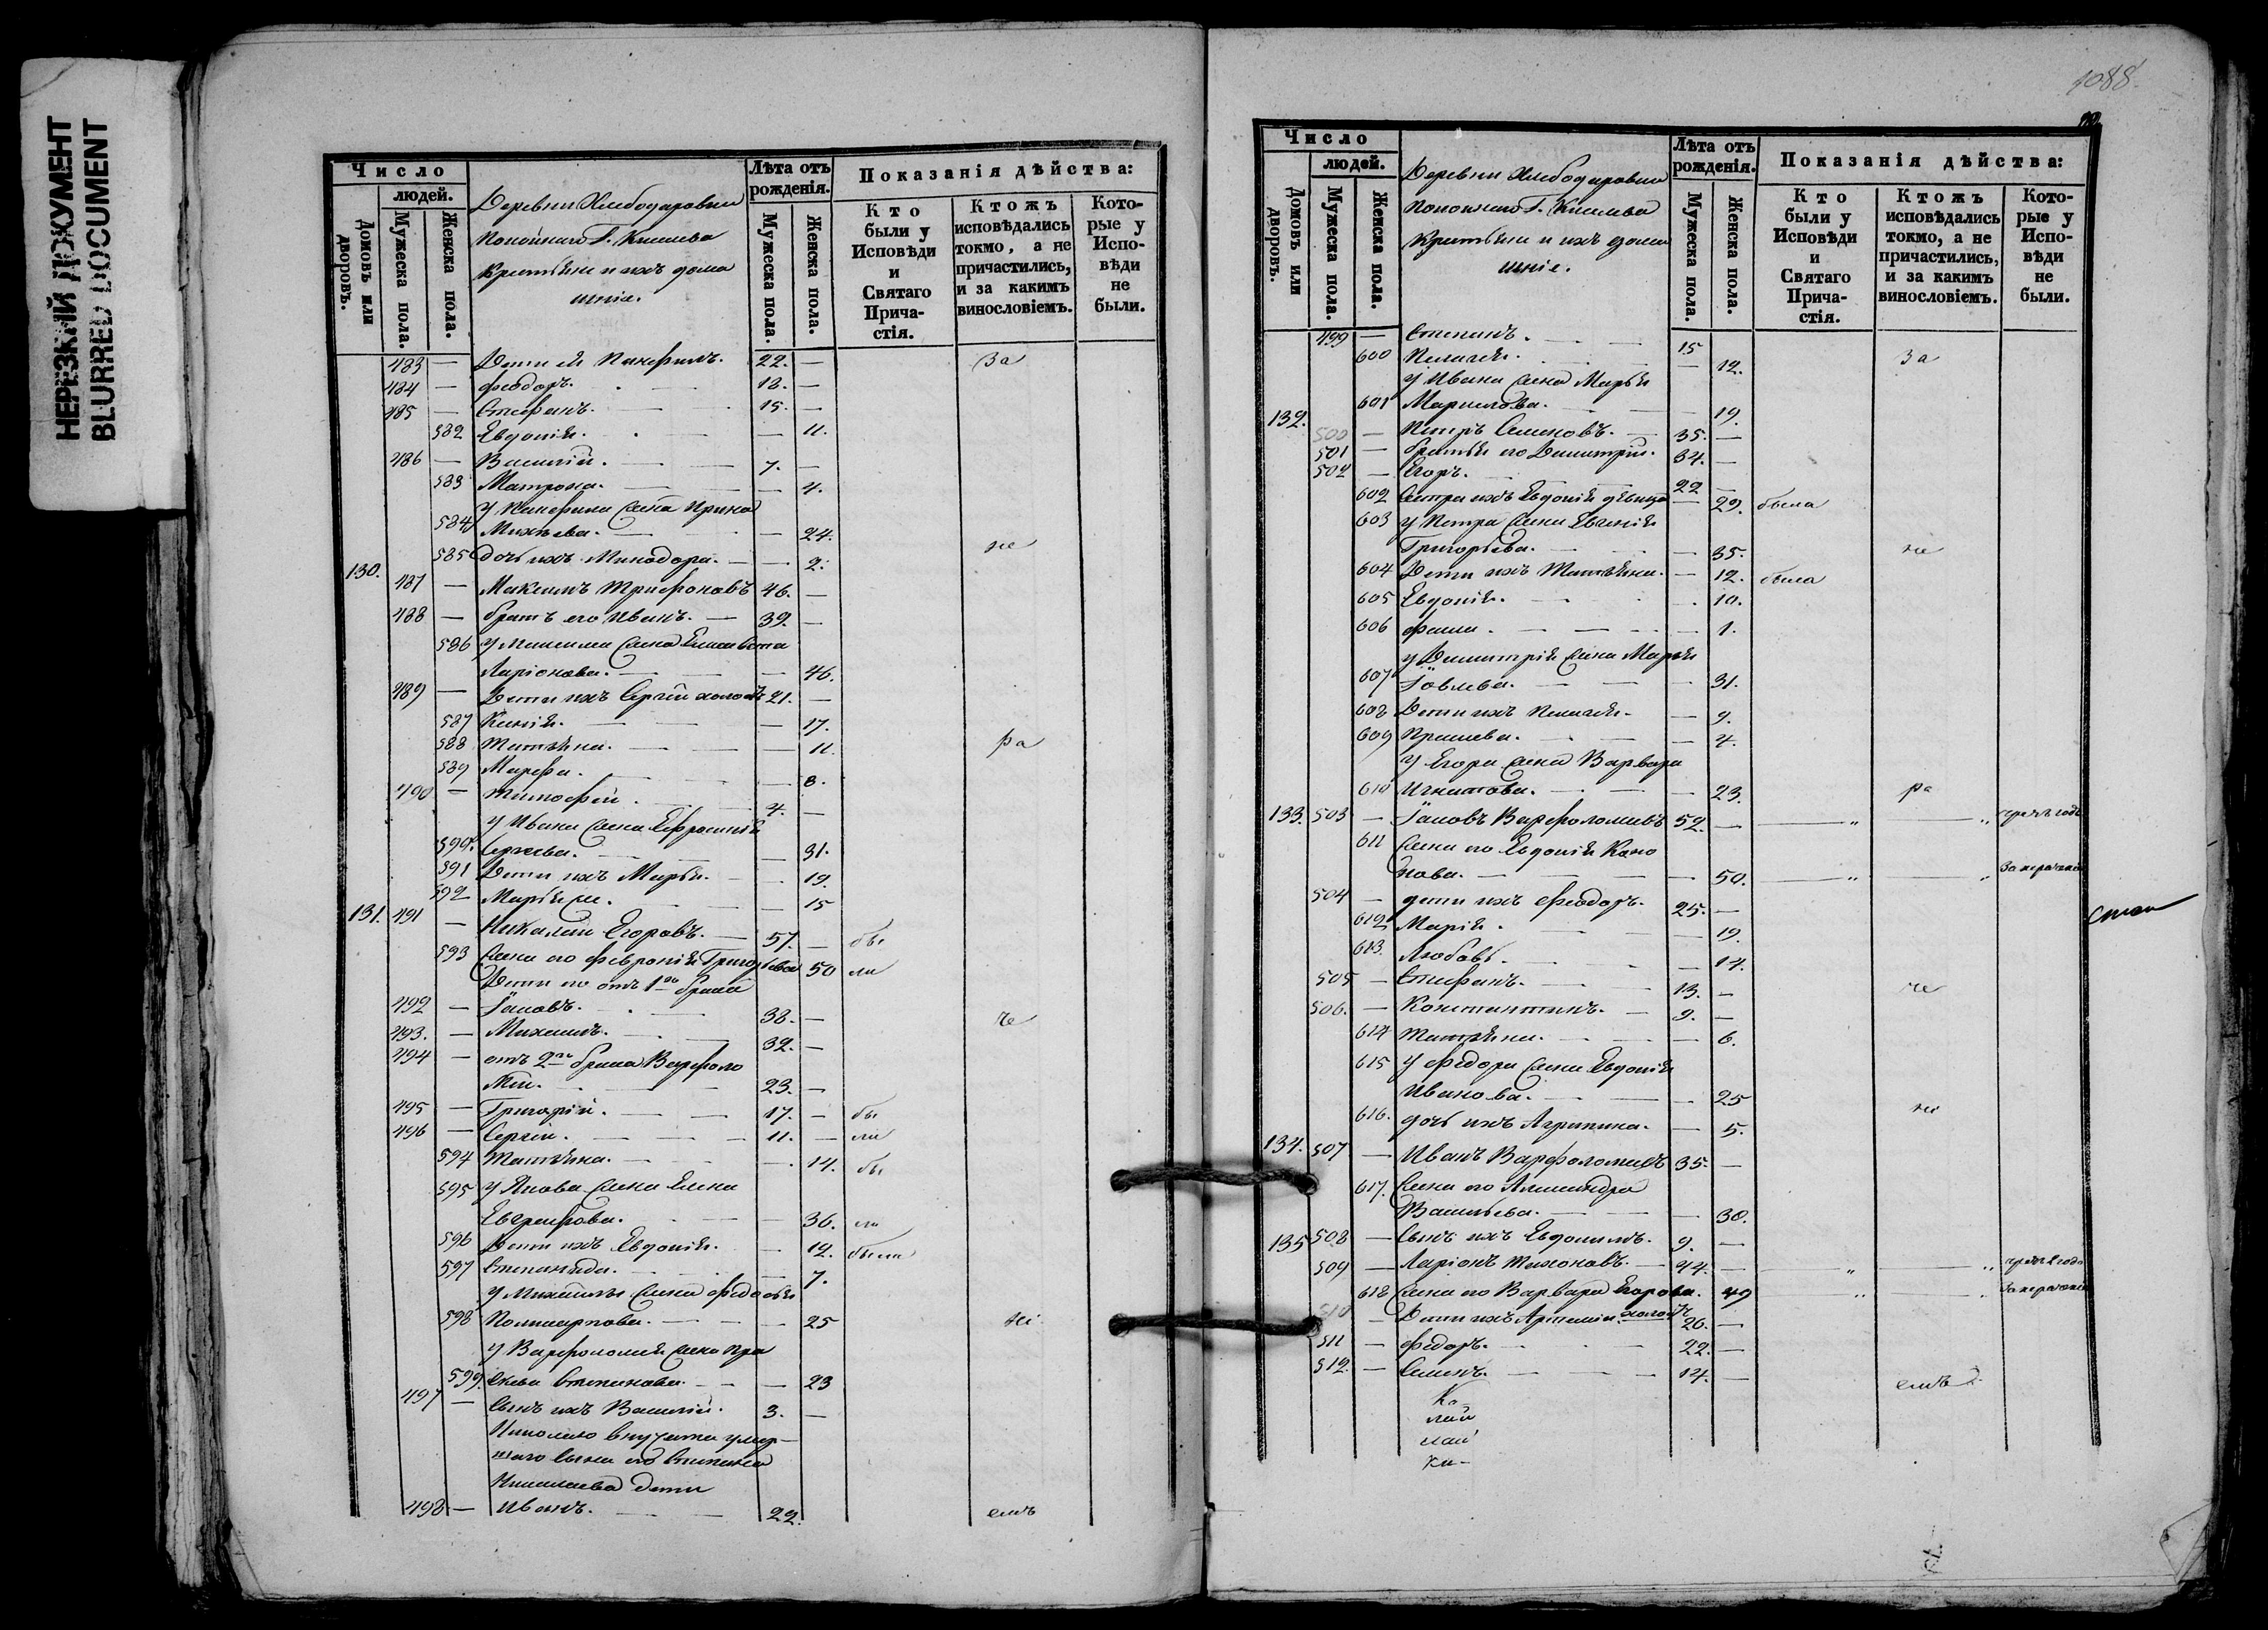 НЕРЕЗКИЙ ДОКУМЕНТ
BLURRED DOCUMENT
Число
людей.
Домовъ или дворовъ.
Мужеска пола.
Женска пола.
Деревни Хлебодаровки
Покойнаго Г. Киселева
Крестьяне и ихъ дома
шніе.
Лѣта отъ рожденія.
Мужеска пола.
Женска пола.
Показанія дѣйства:
Кто были у Исповѣди и Святаго Прича-стія.
Ктожъ исповѣдались токмо, а не причастились, и за какимъ винословіемъ.
Кото-рые у Испо-вѣди не были.
483 — Дети ея Панфилъ. 22. — За
484 — Феодоръ. 18. —
485 — Стефанъ. 15. —
582 Евдокія. — 11.
486 — Василій. 7. —
583 Матрона. — 4.
У Панфила жена Ирина
584 Михеева. — 24.
585 дочь ихъ Минодора. — 2. не
130. 487 — Максимъ Трифоновъ 46. —
488 — братъ его Иванъ. 39. —
586 У Максима жена Елисавета
Ларіонова. — 46.
489 — Дети ихъ Сергій холостъ 21. —
587 Ксенія. — 17.
588 Татьяна. — 11. ра
589 Марфа. — 8.
490 — Тимофей. 4. —
У Ивана жена Ефросинія
590. Сергеева. — 31.
591 Дети ихъ Марья. — 19.
592 Марья — 15
131. 491 — Николай Егоровъ. 57. — бы
593 Жена его Февронія Григорьева 50 ли
Дети его отъ 1го брака
492 — Іаковъ. 38. — че
493. — Михаилъ. 32. —
494 — отъ 2го брака Варфоло
мей. 23. —
495 — Григорій. 17. — бы
496 — Сергій. 11. — ли
594 Татьяна. — 14. бы
595 У Якова жена Елена
Евграфова. — 36. ли
596 Дети ихъ Евдокія. — 12. была
597 Степанида. — 7.
У Михаилы жена Федосья
598 Поликарпова. — 25 ні
У Варфоломея жена Пра
599. сковья Степанова. — 23
497 — Сынъ ихъ Василій. 3. —
Николаю внучата умер-
шаго сына его Степана
Николаева дети
498 — Иванъ. 22. емъ
1088.
Число
людей.
Домовъ или дворовъ.
Мужеска пола.
Женска пола.
Деревни Хлебодаровки
Покойнаго Г. Киселева
Крестьяне и ихъ дома
шніе.
Лѣта отъ рожденія.
Мужеска пола.
Женска пола.
Показанія дѣйства:
Кто были у Исповѣди и Святаго Прича-стія.
Ктожъ исповѣдались токмо, а не причастились, и за какимъ винословіемъ.
Кото-рые у Испо-вѣди не были.
499 — Степанъ. 15
600 Пелагея. — 12. За
У Ивана жена Марья
601 Маркелова. — 19.
132. 500 — Петръ Семеновъ. 35. —
501 — братья его Димитрій. 34. —
502 — Егоръ. 22 —
602 Сестра ихъ Евдокія девица — 29. была
603 У Петра жена Евгенія
Григорьева. — 35. не
604 Дети ихъ Татьяна. — 12. была
605 Евдокія. — 10.
606 Фекла. — 1.
У Димитрія жена Марья
607 Іовлева. — 31.
608 Дети ихъ Пелагея. — 9.
609 Прасковья. — 4.
У Егора жена Варвара
610 Игнатова. — 23. ра
133. 503 — Іаковъ Варфоломеевъ 52. — „ — „
611 Жена его Евдокія Коно
нова. — 50. — „ — „
504 — дети ихъ Феодоръ. 25. —
стан
612 Марія. — 19.
613. Любовь. — 14.
505 — Стефанъ. 13. — че
506. — Константинъ. 9. —
614 Татьяна. — 6.
615 У Федора жена Евдокія
Иванова. — 25
616. дочь ихъ Агрипина. — 5. ні
134. 507 — Иванъ Варфоломеевъ 35. —
617. Жена его Александра
Васильева. — 38.
508 — Сынъ ихъ Евдокимъ. 9. —
135 509 — Ларіонъ Тихоновъ. 44. — „ — „
618 Жена его Варвара Егорова. 49 „ „
510 — Дети ихъ Артемій холостъ 26. —
511 — Федоръ. 22. —
512. — Семенъ. 14. — емъ
Ко-
лай
лай
ки-